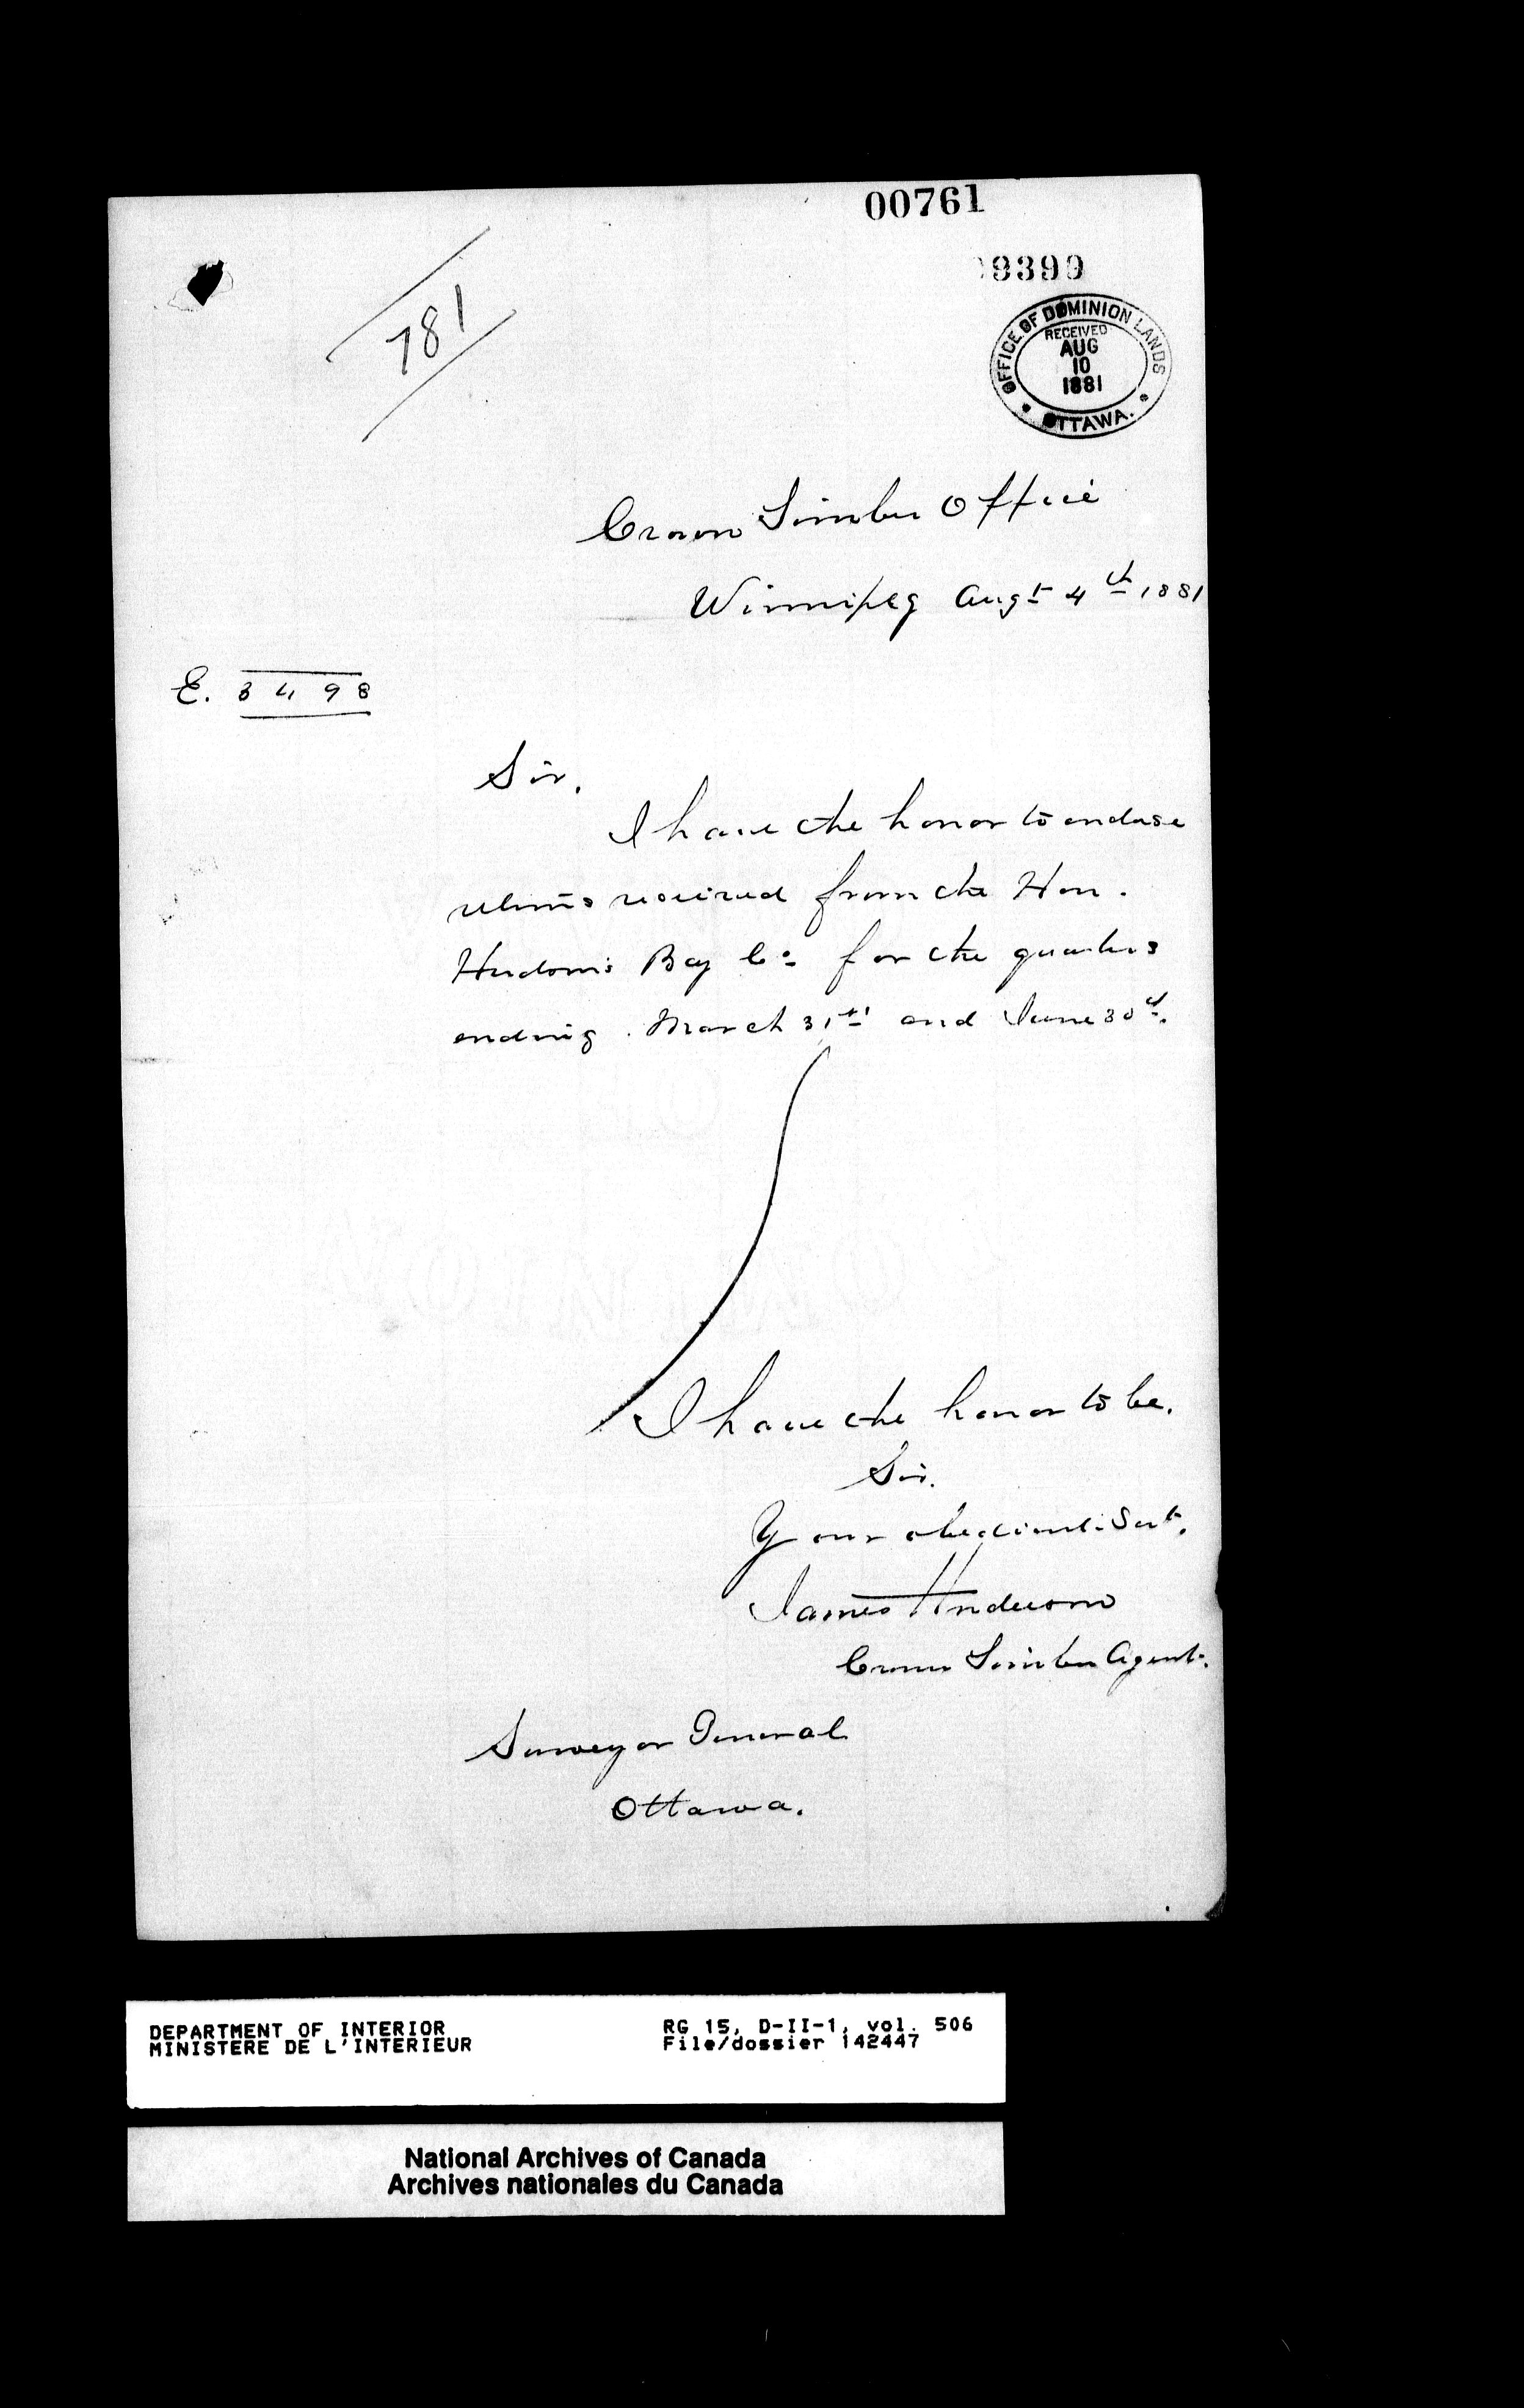 00761
9399
781
OFFICE OF DOMINION LANDS
RECEIVED
AUG
10
1881
OTTAWA.
Crown Timber Office
Winnipeg Augt 4th 1881
E. 3498
Sir.
I have the honor to enclose
returns received from the Hon.
Hudson's Bay Co for the quarters
ending March 31st and June 30th.
I have the honor to be.
Sir.
Your obedient Servt.
James Anderson
Crown Timber Agent.
Surveyor General
Ottawa.
DEPARTMENT OF INTERIOR
MINISTERE DE L'INTERIEUR
RG 15, D-II-1, vol. 506
File/dossier 142447
National Archives of Canada
Archives nationales du Canada